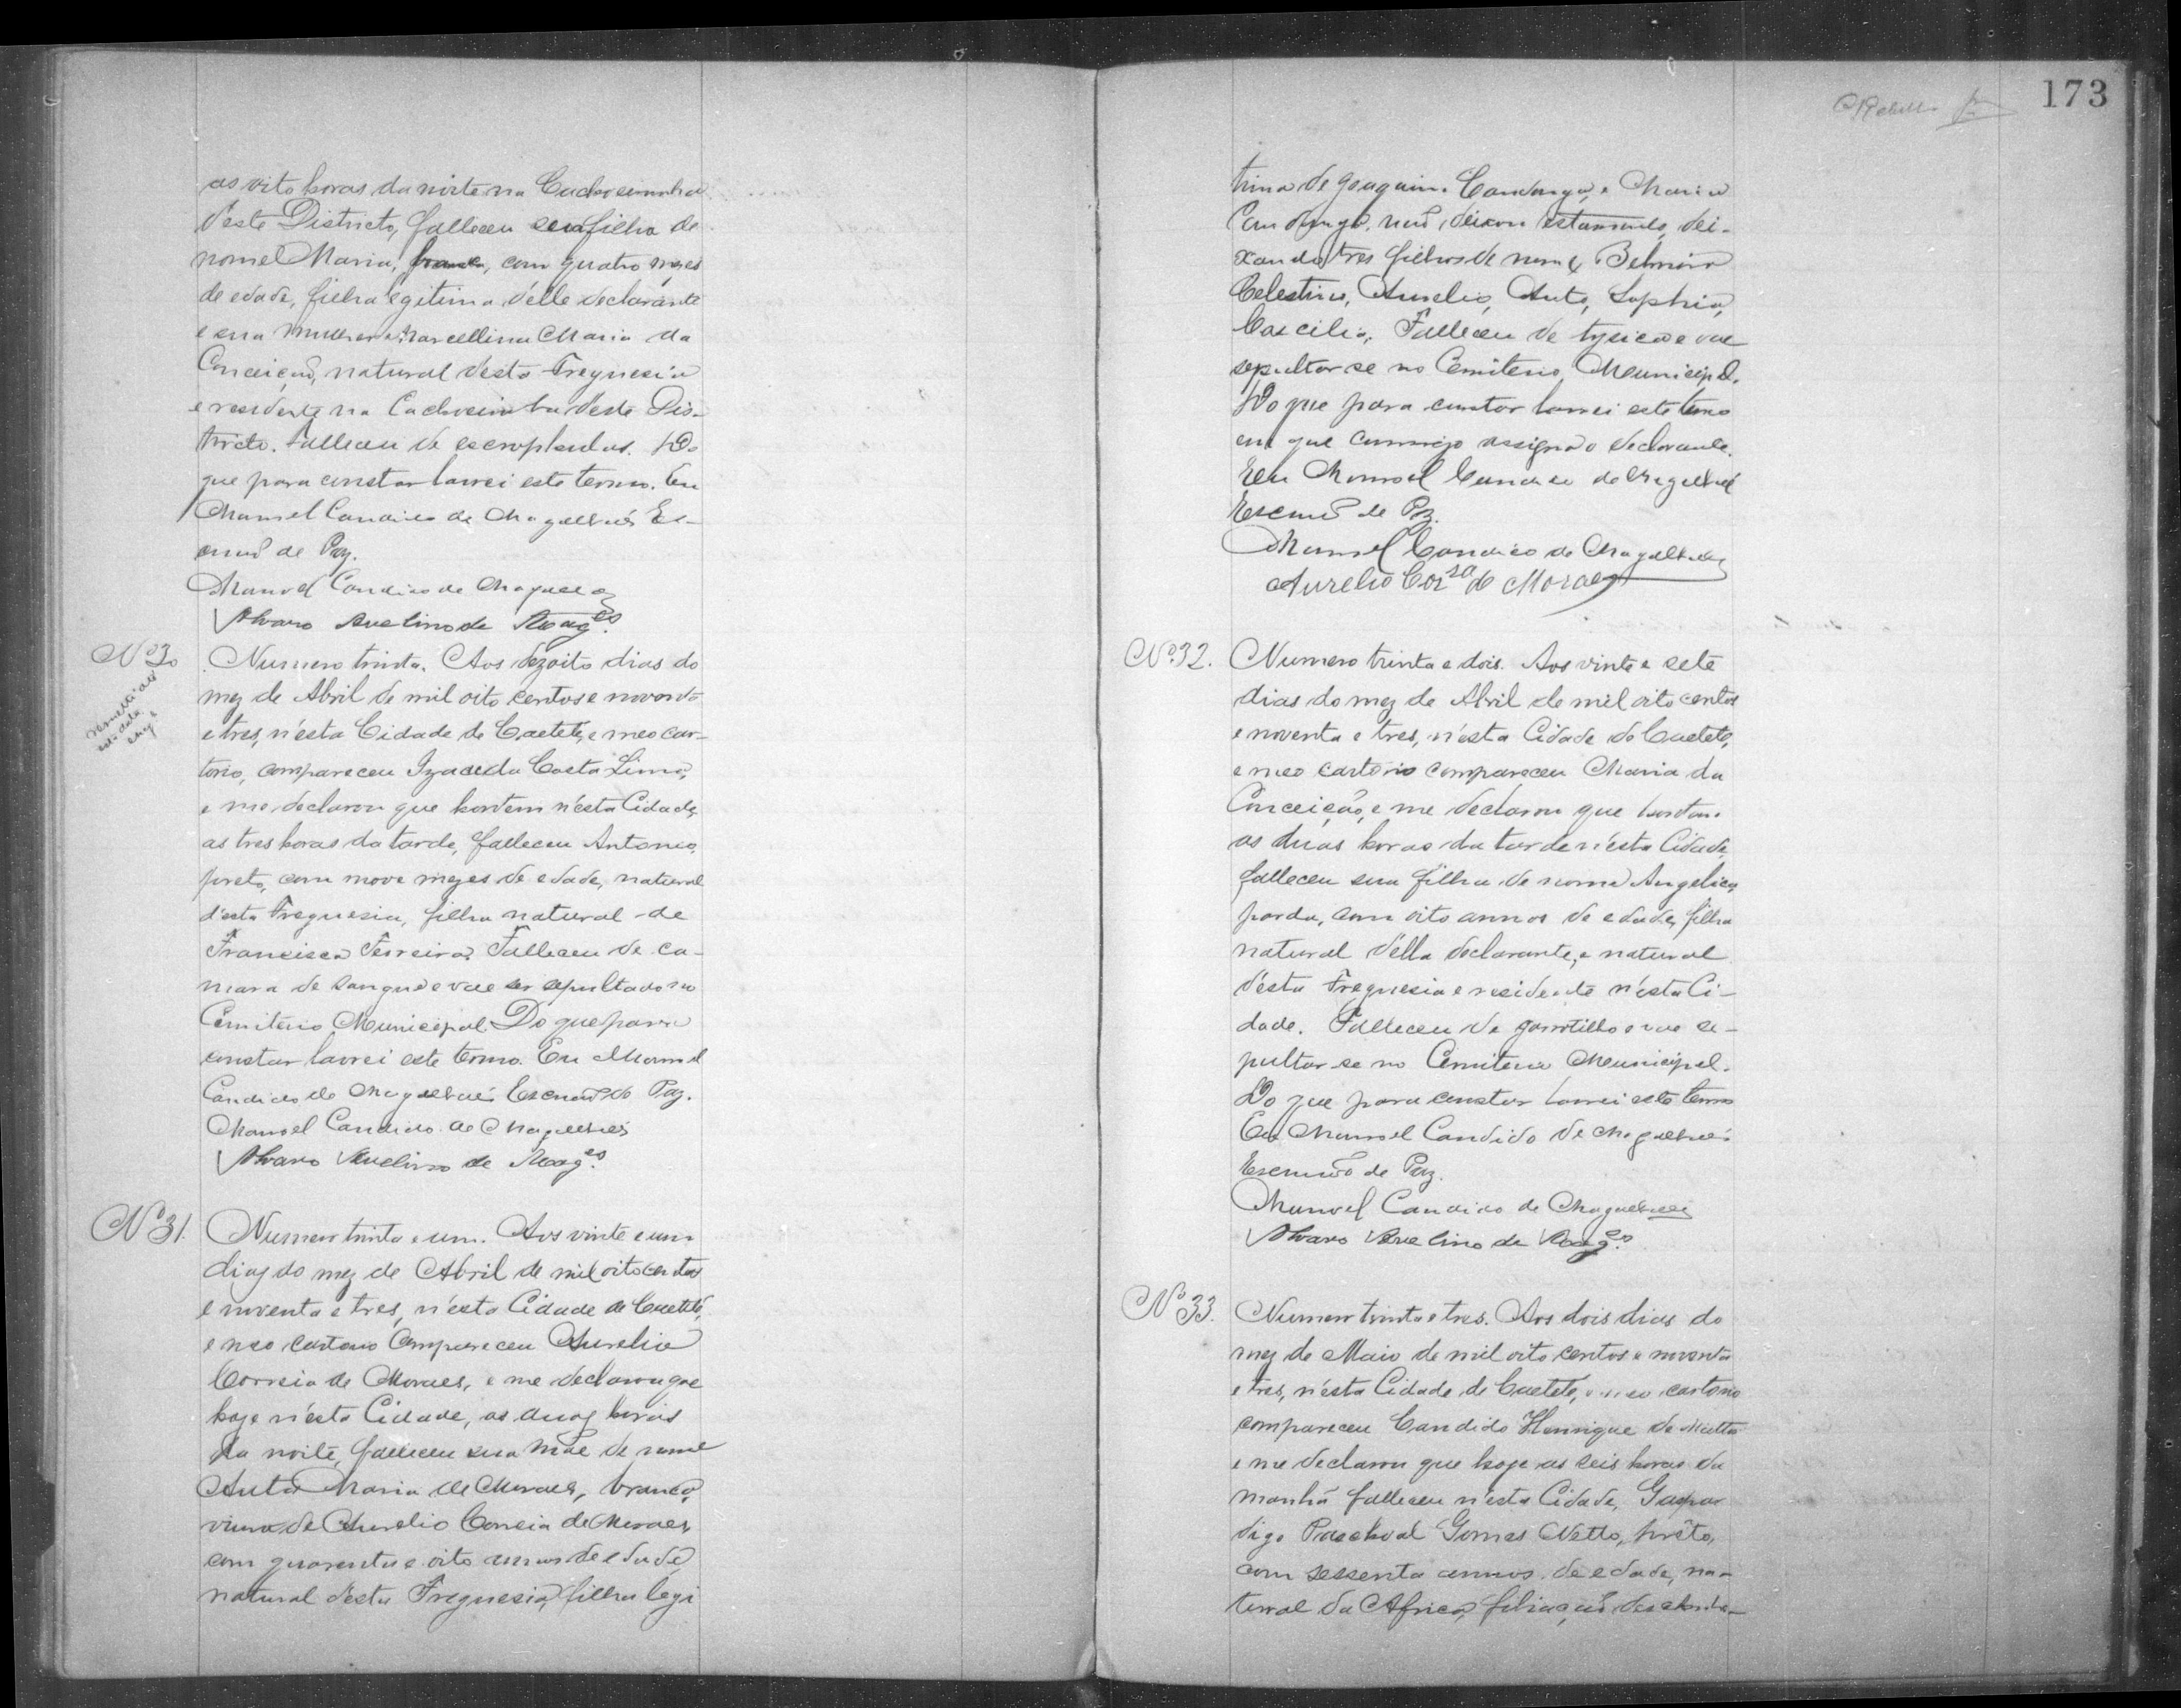 as oito horas da noite na Cachoeirinha
deste Districto, falleceu sua filha de
nome Maria, branca, com quatro mezes
de edade, filha legitima d'elle declarante
e sua mulher Marcellina Maria da
Conceição, natural desta Freguesia
e residente na Cachoeirinha deste Dis-
tricto. Falleceu de escrophulas. Do
que para constar lavrei este termo. Eu
Manoel Candido de Magalhães Es-
crivão de Paz.
Manoel Candido de Magalhães
Alvaro Avelino de Mag.es
No 30
Numero trinta. Aos dezoito dias do
mez de Abril de mil oito centos e noventa
e tres, n'esta Cidade de Caeteté, e meo car-
torio, compareceu da Costa Lima,
e me declarou que hontem n'esta Cidade
as tres horas da tarde, falleceu Antonio,
preto, com nove mezes de edade, natural
d'esta Freguesia, filho natural de
Francisca Ferreira. Falleceu de ca-
mara de sangue e vae ser sepultado no
Cemiterio Municipal. Do que para
constar lavrei este termo. Eu Manoel
Candido de Magalhães Escrivão de Paz.
Manoel Candido de Magalhães
Alvaro Avelino de Mag.es
No 31.
Numero trinta e um. Aos vinte e um
dias do mez de Abril de mil oito centos
e noventa e tres, n'esta Cidade de Caeteté,
e meo cartorio compareceu Aurelio
Correia de Moraes, e me declarou que
hoje n'esta Cidade, as duas horas
da noite, falleceu sua Mãe de nome
Auta Maria de Moraes, branca,
viuva de Aurelio Correia de Moraes
com quarenta e oito annos de edade,
natural desta Freguesia, filha legi
173
tima de Joaquim e Maria
não deixou testamento, dei-
xando tres filhos de nomes Belmiro
Celestino, Aurelio, Auta, Sophia,
Cascilia. Falleceu de tysica e vae
sepultar-se no Cemiterio Municipal.
Do que para constar lavrei este termo
em que commigo assigna o declarante.
Eu Manoel Candido de Magalhães
Escrivão de Paz.
Manoel Candido de Magalhães
Aurelio Cor.ra de Moraes
No. 32.
Numero trinta e dois. Aos vinte e sete
dias do mez de Abril de mil oito centos
e noventa e tres, n'esta Cidade de Caeteté,
e meo cartorio compareceu Maria da
Conceição, e me declarou que hontem
as duas horas da tarde n'esta Cidade,
falleceu sua filha de nome Angelica,
parda, com oito annos de edade, filha
natural d'ella declarante, e natural
d'esta Freguesia e residente n'esta Ci-
dade. Falleceu de garrotilho e vae se-
pultar-se no Cemiterio Municipal.
Do que para constar lavrei este termo
Eu Manoel Candido de Magalhães
Escrivão de Paz.
Manoel Candido de Magalhães
Alvaro Avelino de Mag.es
No 33.
Numero trinta e tres. Aos dois dias do
mez de Maio de mil oito centos e noventa
e tres, n'esta Cidade de Caeteté, e meo cartorio
compareceu Candido Henrique de Mattos
e me declarou que hoje as seis horas da
manhã falleceu n'esta Cidade, Gaspar
digo Paschoal Gomes Netto, prêto,
com sessenta annos de edade, na-
tural da Africa, filiação